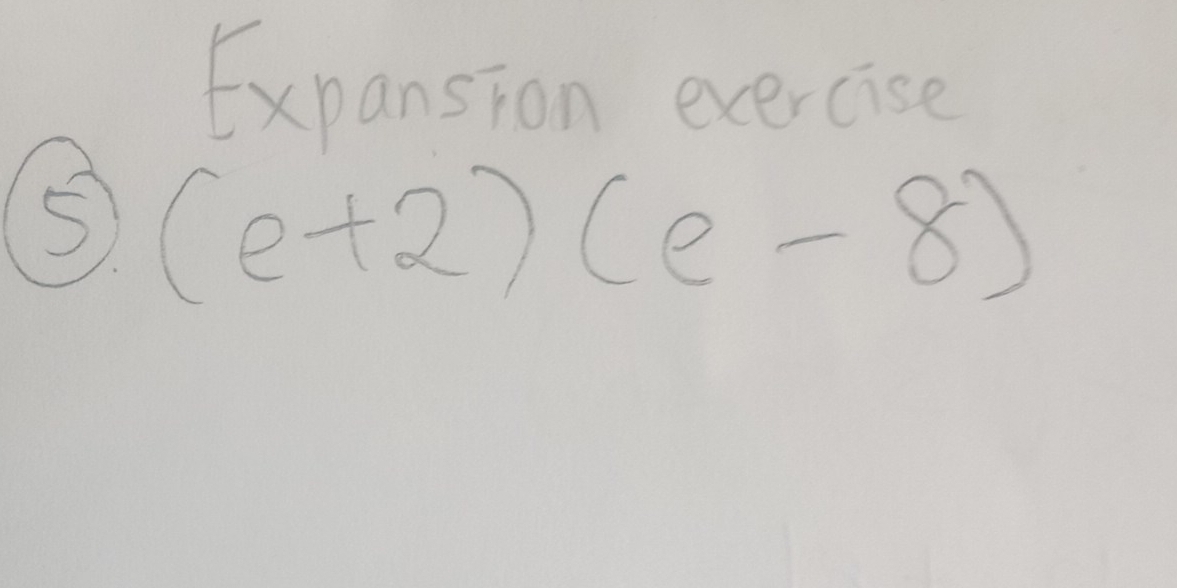 Expansion exercise
⑤. (e+2)(e - 8)